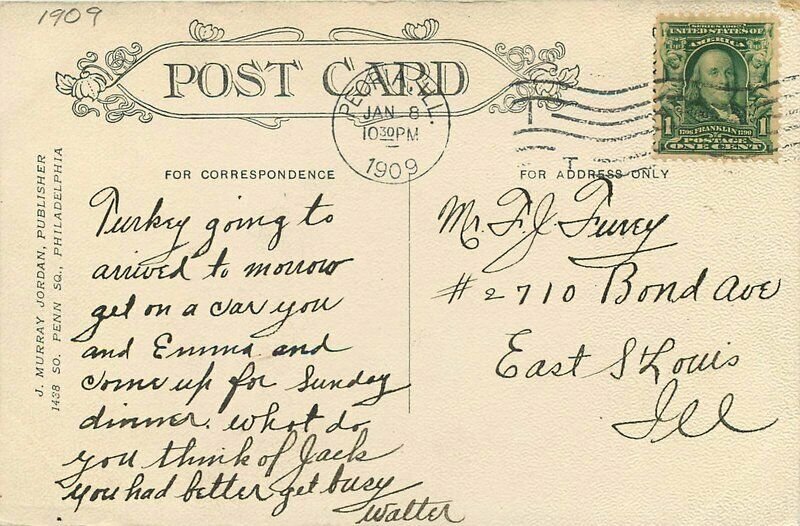 1909
POST CARD
PEORIA, ILL.
JAN 8
10 30 PM
1909
SERIES 1902
UNITED STATES OF
AMERICA
1 1706 FRANKLIN 1790 1
POSTAGE
ONE CENT
FOR CORRESPONDENCE
FOR ADDRESS ONLY
J. MURRAY JORDAN, PUBLISHER
1438 SO. PENN SQ., PHILADELPHIA
Turkey going to
arrived to morrow
get on a car you
and Emma and
come up for Sunday
dinner. what do
you think of Jack
you had better get busy
Walter
Mr. F. J. Furey
#2710 Bond Ave
East S Louis
Ill